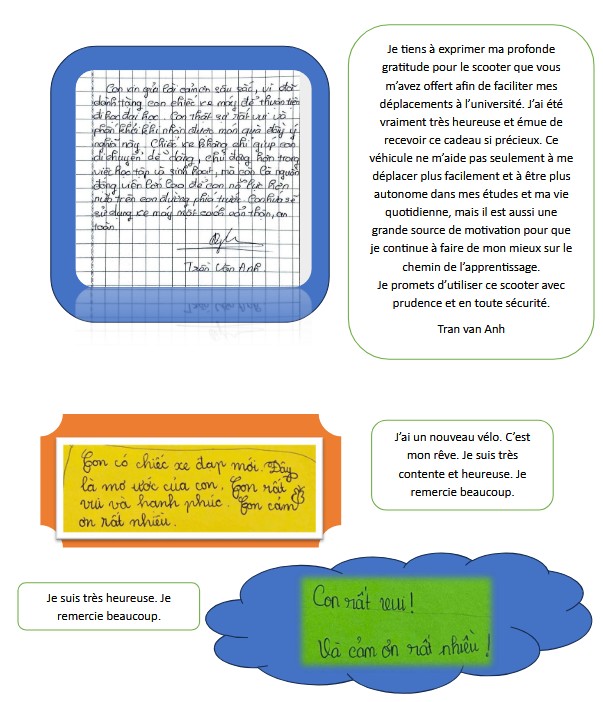 Con xin gửi lời cảm ơn sâu sắc, vì đã
dành tặng con chiếc xe máy để thuận tiện
đi học đại học. Con thật sự rất vui và
phấn khởi khi nhận được món quà đầy ý
nghĩa này. Chiếc xe không chỉ giúp con
di chuyển dễ dàng, chủ động hơn trong
việc học tập và sinh hoạt, mà còn là nguồn
động viên lớn lao để con nỗ lực hơn
nữa trên con đường phía trước. Con hứa sẽ
sử dụng xe máy một cách cẩn thận, an
toàn.
Trần Vân Anh
Je tiens à exprimer ma profonde
gratitude pour le scooter que vous
m'avez offert afin de faciliter mes
déplacements à l'université. J'ai été
vraiment très heureuse et émue de
recevoir ce cadeau si précieux. Ce
véhicule ne m'aide pas seulement à me
déplacer plus facilement et à être plus
autonome dans mes études et ma vie
quotidienne, mais il est aussi une
grande source de motivation pour que
je continue à faire de mon mieux sur le
chemin de l'apprentissage.
Je promets d'utiliser ce scooter avec
prudence et en toute sécurité.
Tran van Anh
Con có chiếc xe đạp mới. Đây
là mơ ước của con. Con rất
vui và hạnh phúc. Con cảm
ơn rất nhiều.
J'ai un nouveau vélo. C'est
mon rêve. Je suis très
contente et heureuse. Je
remercie beaucoup.
Je suis très heureuse. Je
remercie beaucoup.
Con rất vui!
Và cảm ơn rất nhiều!